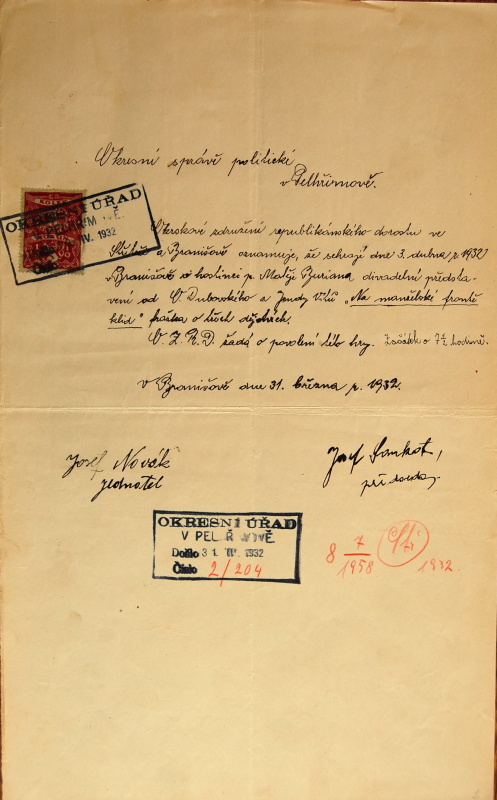 Okresní správě politické
v Pelhřimově.
OKRESNÍ ÚŘAD
V PELHŘIMOVĚ
IV. 1932
Místní sdružení republikánského dorostu ve
a Branišově oznamuje, že sehraje dne 3. dubna r. 1932
v Branišově v hostinci p. Matěje Buriana divadelní představ-
vení od V. Dubovského a Jendy "Na manželské frontě
klid" fraška o třech dějstvích.
žádá o povolení této hry. Začátek o 7½ hodině.
v Branišově dne 31. března r. 1932.
Josef Novák
jednatel
Josef
předseda
OKRESNÍ ÚŘAD
V PELHŘIMOVĚ
Došlo 31. III. 1932
Číslo 2/204
8 7
1958 1932.